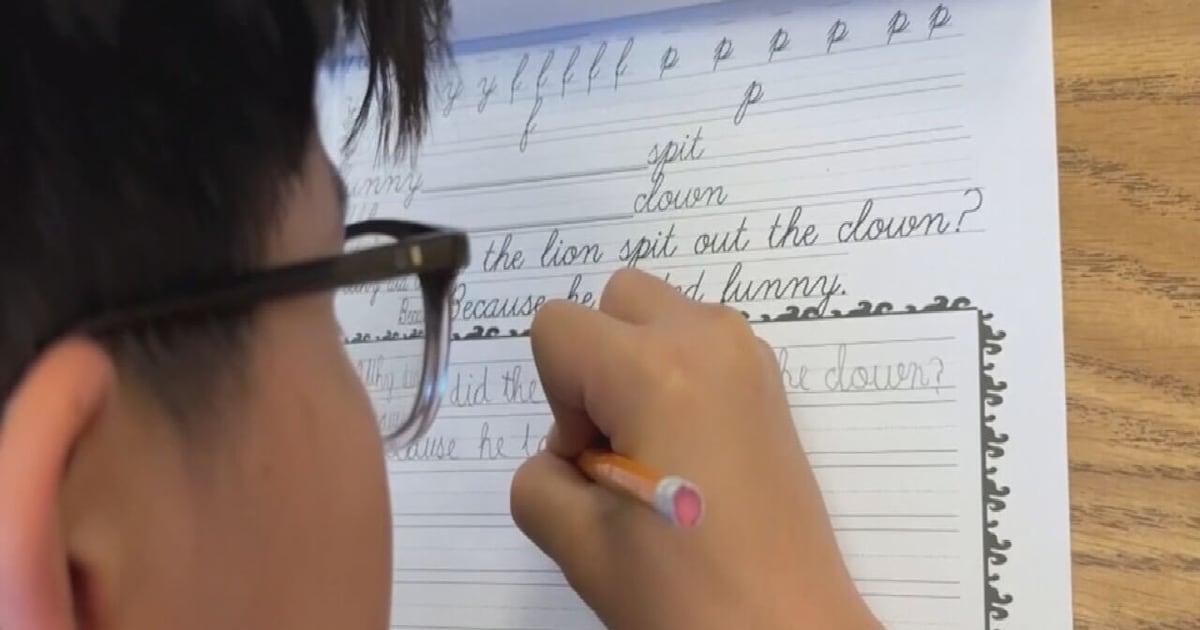 y y f f f f f p p p p p p
f p
unny spit
clown
the lion spit out the clown?
Because he funny.
Why did the he clown?
ause he ta